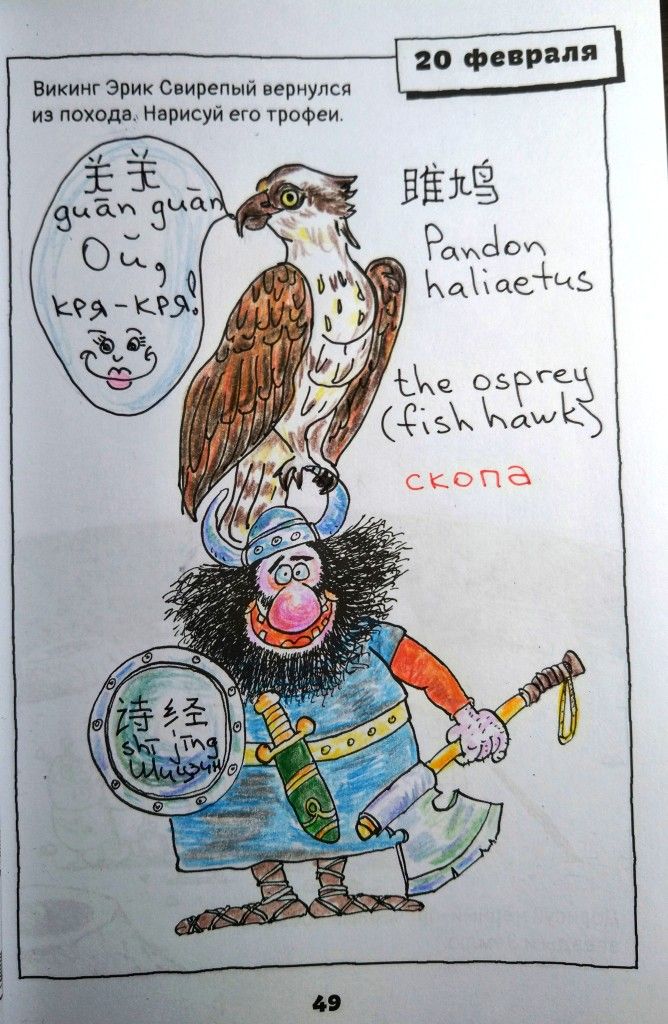 20 февраля
Викинг Эрик Свирепый вернулся
из похода. Нарисуй его трофеи.
关关
guān guān
Ой,
кря-кря!
雎鸠
Pandon
haliaetus
the osprey
(fish hawk)
скопа
诗经
shī jīng
Шицзин
49